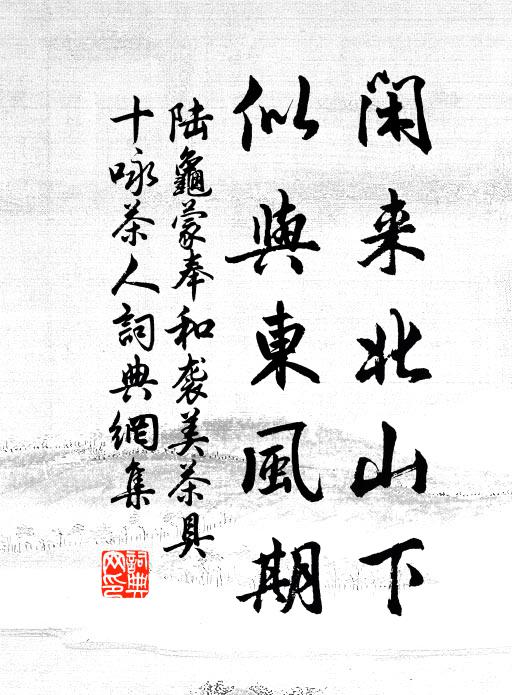 閑来北山下
似與東風期
陆龜蒙奉和袭美茶具
十咏茶人詞典網集
詞典网印